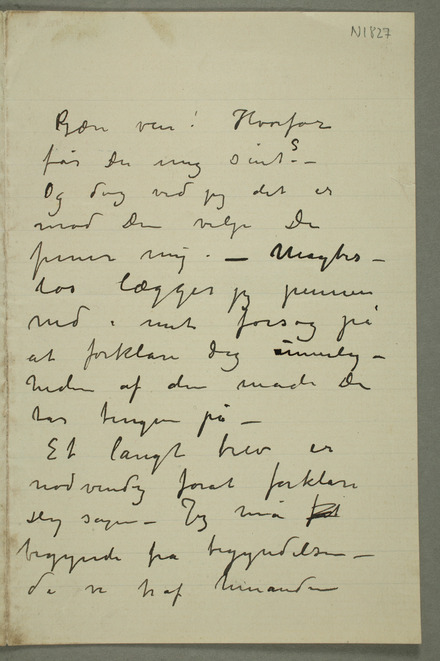 N1827
Kjære ven! Hvorfor
får Du mig sint? –
Og dog ved jeg det er
mod Din vilje Du
piner mig. – Magtes-
løs lægger jeg pennen
ned i mit forsøg på
at forklare Dig umulig-
heden af den måde Du
tar tingen på –
Et langt brev er
nødvendig forat forklare
Dig sagen – Jeg må
begynde fra begyndelsen –
da vi traf hinanden